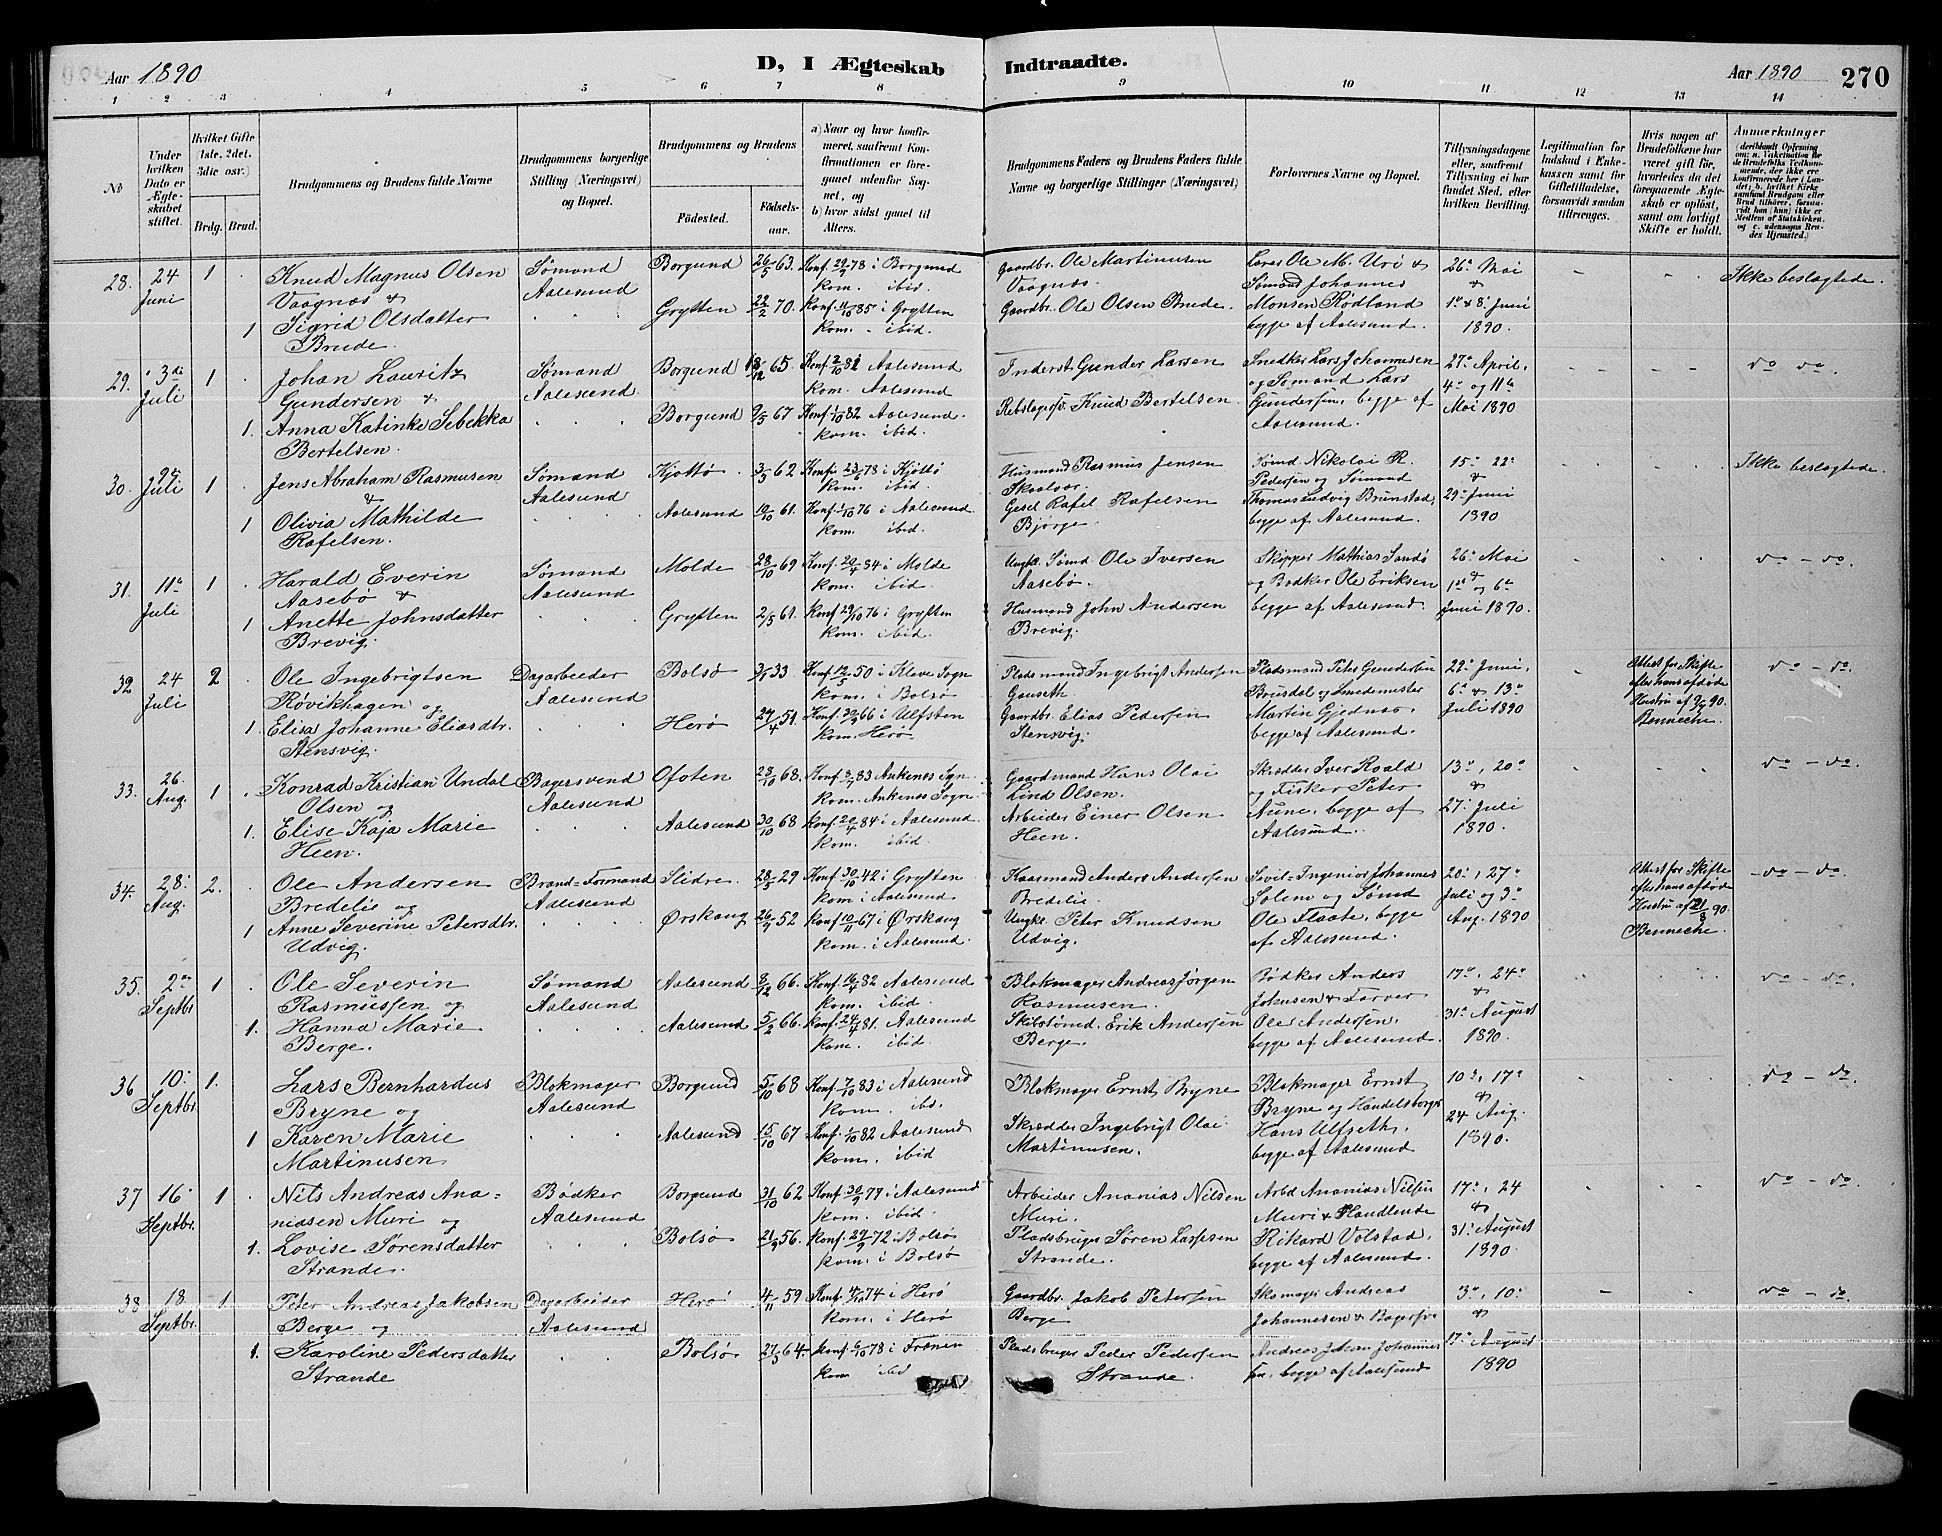 Aar 1890
D, I Ægteskab Indtraadte.
Aar 1890
270
1 2 3 4 5 6 7 8 9 10 11 12 13 14
№
Under hvilken Dato er Ægteskabet stiftet.
Hvilket Gifte (1ste. 2det. 3die osv.)
Brdg. Brud.
Brudgommens og Brudens fulde Navne
Brudgommens borgerlige Stilling (Næringsvei) og Bopæl.
Brudgommens og Brudens
Fødested. Fødselsaar.
a) Naar og hvor konfirmeret, saafremt Konfirmationen er foregaaet udenfor Sognet, og
b) hvor sidst gaaet til Alters.
Brudgommens Faders og Brudens Faders fulde Navne og borgerlige Stillinger (Næringsvei)
Forlovernes Navne og Bopæl.
Tillysningsdagene eller, saafremt Tillysning ei har fundet Sted, efter hvilken Bevilling.
Legitimation for Indskud i Enkekassen samt for Giftetilladelse, forsaavidt saadan tiltrænges.
Hvis nogen af Brudefolkene har været gift før, hvorledes da det foregaaende Ægteskab er opløst, samt om lovligt Skifte er holdt.
Anmerkninger (deriblandt Oplysning om: a. Vakcination for de Brudefolks Vedkommende, der ikke ere konfirmerede her i Landet; b. hvilket Kirkesamfund Brudgom eller Brud tilhører, forsaavidt han (hun) ikke er Medlem af Statskirken, og c. udensogns Brudes Hjemsted.)
28. 24 Juni 1 Knud Magnus Olsen Sømand Borgund 26/5 63. Konf. 29/9 78 i Borgund Gaardbr. Ole Martinusen Lærer Ole M. Uri & 26de Mai Ikke beslægtede.
Vaagnæs & Aalesund kom. ibid. Vaagnæs. Sømand Johannes &
1 Sigrid Olsdatter Grytten 22/2 70. Konf. 11/10 85 i Grytten Gaardbr. Ole Olsen Brude. Monsen Rødland 1ste & 8de Juni
Brude. kom. ibid. begge af Aalesund. 1890.
29. 3die Juli 1 Johan Lauritz Sømand Borgund 18/12 65. Konf. 2/10 81 Aalesund Inderst Gunder Larsen Snedker Lars Johannesen 27de April, do do.
Gundersen & Aalesund kom. Aalesund og Sømand Lars 4de og 11te
1. Anna Katinke Sebekka Borgund 9/5 67 Konf. 1/10 82 Aalesund. Rebslagersv. Knud Bertelsen. Gundersen, begge af Mai 1890
Bertelsen. kom. ibid. Aalesund.
30. 9de Juli 1 Jens Abraham Rasmusen Sømand Kjøttø 3/3 62 Konf. 23/6 78 i Kjøttø Husmand Rasmus Jensen Sømd. Nikolai R. 15de 22de Ikke beslægtede.
& Aalesund kom. ibid. Skaalvær. Pedersen og Sømand &
1 Olivia Mathilde Aalesund 19/10 61. Konf. 1/10 76 i Aalesund Gesel Rafel Rafelsen Thomas Ludvig Brunstad, 29de Juni
Rafelsen. kom. ibid. Bjørge. begge af Aalesund. 1890
31. 11te Juli 1 Harald Everin Sømand Molde 28/10 69 Konf. 20/4 84 i Molde Ungk. Sømd Ole Iversen Skipper Mathias Sandø 26de Mai do - do.
Aasebø & Aalesund kom. ibid Aasebø. og Bødker Ole Eriksen 1ste og 6te
1 Anette Johnsdatter Grytten 2/5 61. Konf. 29/10 76 i Grytten Husmand John Andersen begge af Aalesund. Juni 1890.
Brevig. kom. ibid. Brevig.
32 24 Juli 2 Ole Ingebrigtsen Dagarbeider Bolsø 33 Konf. 12/5 50 i Kleve Sogn Pladsmand Ingebrigt Andersen Pladsmand Peter Gundersen 29de Juni, Attest for Skifte do - do.
Røvikhagen og Aalesund kom. i Bolsø Gauseth. Brusdal og Smedemester 6te & 13de efter hans afdøde
1. Elisa Johanne Eliasdtr. Herø 27/4 51. Konf. 66 i Ulfsten Gaardbr. Elias Pedersen Martin Gjednæs, Juli 1890 Hustru af 90.
Stensvig. kom. Herø Stensvig. begge af Aalesund. Benneche.
33. 26. Aug. 1. Konrad Kristian Undal Bagersvend Ofoten 28/10 68. Konf. 83 Ankenes Sgn. Gaardmand Hans Olai Skrædder Iver Roald 13de, 20de do - do.
Olsen og Aalesund kom. Ankenes Sogn. Lind Olsen. og Fisker Peter &
1. Elise Kaja Marie Aalesund 30/10 68 Konf. 20/4 84 i Aalesund Arbeider Einer Olsen Aune, begge af 27de Juli
Heen. kom. ibid Heen. Aalesund. 1890.
34. 28. Aug. 2. Ole Andersen Brand-Formand Slidre. 28/5 29 Konf. 30/10 42 i Grytten Anders Andersen Sivil-Ingeniør Johannes 20de, 27de Attest for Skifte - do - do.
Bredelie og Aalesund kom i Aalesund. Bredelie. Solem og Sømd Juli og 3die efter hans afdøde
1 Anne Severine Petersdtr. Ørskoug 26/9 52 Konf. 10/11 67 i Ørskoug Ungk. Peter Knudsen Ole Flaate, begge Aug. 1890 Hustru af 21/8 90.
Udvig. kom. i Aalesund. Udvig. af Aalesund. Benneche.
35. 2den Septbr. 1. Ole Severin Sømand Aalesund 8/12 66. Konf. 16/4 82 Aalesund Blokmager Andreas Jørgen Bødker Anders 17de, 24de do - do.
Rasmussen og Aalesund kom. ibid. Rasmusen. Johnsen & Farver &
1. Hanna Marie Aalesund 5/2 66. Konf. 24/4 81. Aalesund Skibstømd. Erik Andersen Ole Andersen, 31te August
Berge. kom. ibid Berge. begge af Aalesund. 1890.
36 10. Septbr. 1. Lars Bernhardus Blokmager Borgund 5/10 68 Konf. 7/10 83 i Aalesund Blokmager Ernst Bryne Blokmager Ernst 10de, 17de do - do.
Bryne og Aalesund kom. ibd. Bryne og Handelsborger &
1 Karen Marie Aalesund 15/10 67 Konf. 1/10 82 Aalesund Skrædder Ingebrigt Olai Hans Ulfseth, 24 Aug.
Martinusen kom. ibid Martinusen. begge af Aalesund 1890.
37 16. Septbr. 1 Nils Andreas Ana- Bødker Borgund 31/10 62 Konf. 30/9 77 i Aalesund Arbeider Ananias Nilsen Arbd Ananias Nilsen 17de, 24 do - do.
niasen Muri og Aalesund kom. ibid Muri. Muri & Handlende &
1. Lovise Sørensdatter Bolsø 21/9 56. Konf. 29/9 72 i Bolsø Pladsbruger Søren Lassesen Rikard Volstad, 31te August
Strande. kom. i Bolsø Strande. begge af Aalesund. 1890.
38 18 Septbr. 1. Peter Andreas Jakobsen Dagarbeider Herø 4/11 59 Konf 4/10 74 i Herø Gaardbr. Jakob Petersen Skomager Andreas 3die, 10de do - do.
Berge og Aalesund kom. i Herø Berge Johannesen & Bagersv. &
1. Karoline Pedersdatter Bolsø 27/3 64. konf. 6/10 78 i Frænen Pladsbruger Peder Pedersen Andreas Johan Johannes 17de August
Strande kom ibid Strande. sen, begge af Aalesund 1890